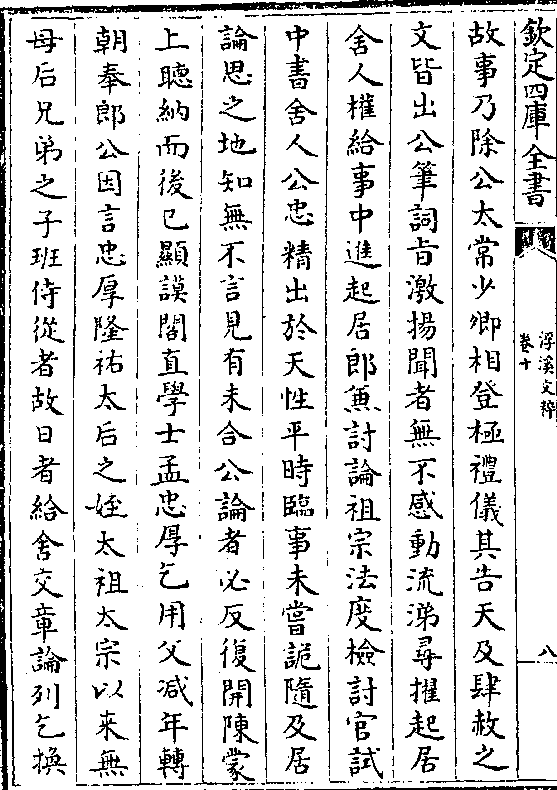 欽定四庫全書
浮溪文粹
卷十
八
故事乃除公太常少卿相登極禮儀其告天及肆赦之
文皆出公筆詞旨激揚聞者無不感動流涕尋擢起居
舍人權給事中進起居郎兼討論祖宗法度檢討官試
中書舍人公忠精出於天性平時臨事未嘗詭隨及居
論思之地知無不言見有未合公論者必反復開陳蒙
上聽納而後已顯謨閣直學士孟忠厚乞用父減年轉
朝奉郎公因言忠厚隆祐太后之姪太祖太宗以來無
母后兄弟之子班侍從者故日者給舍交章論列乞換